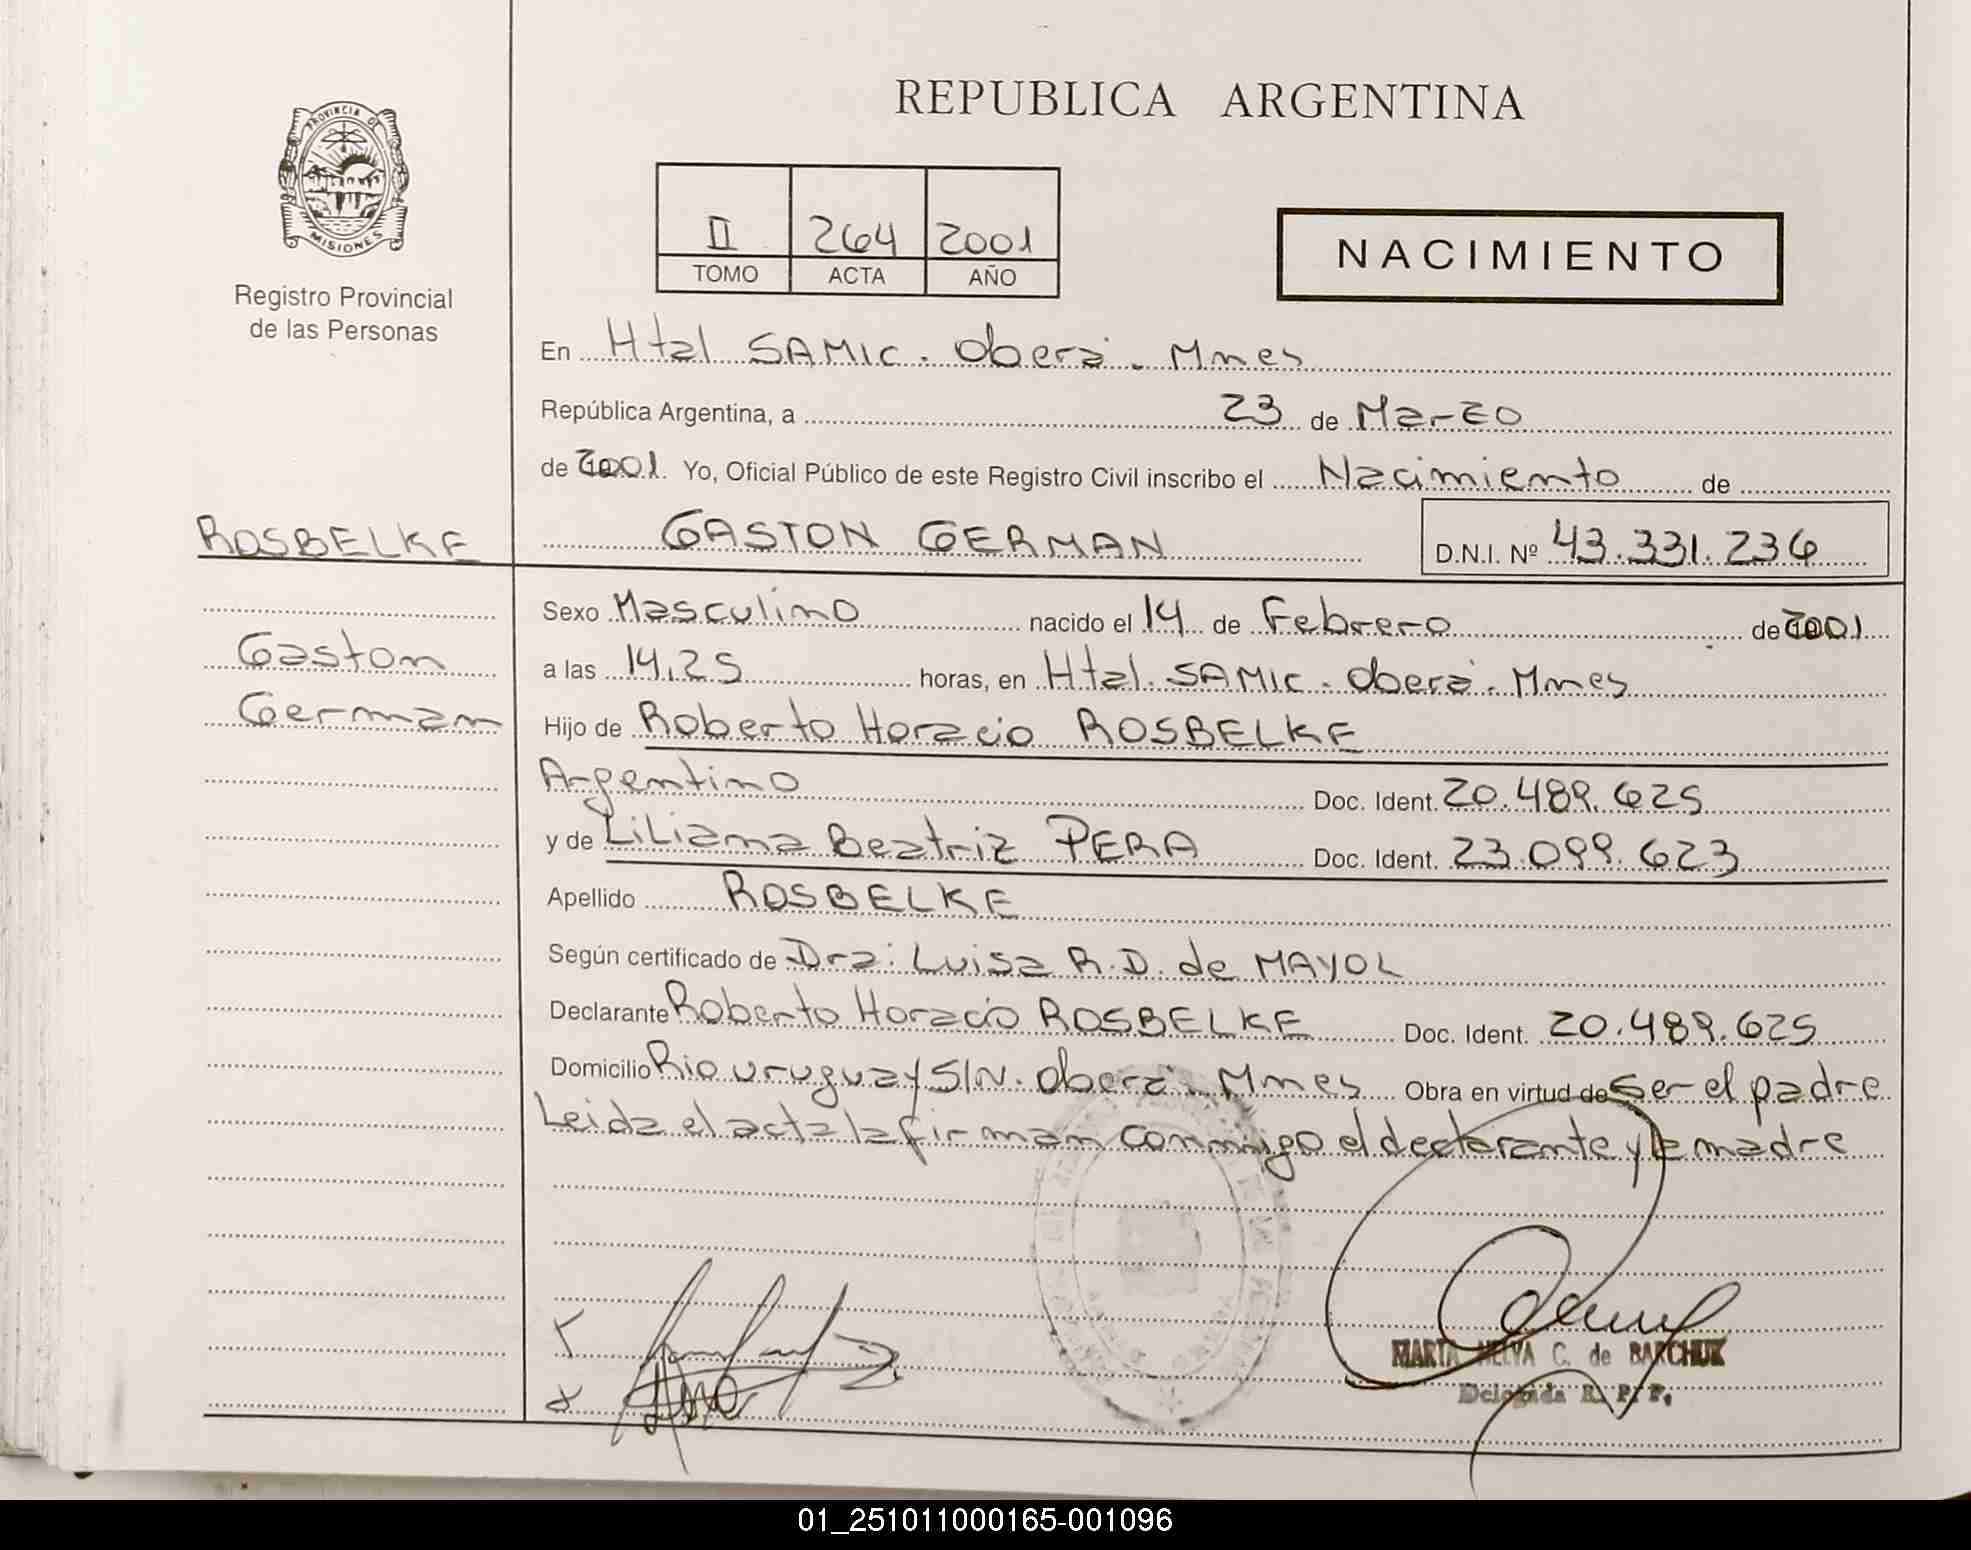 REPUBLICA ARGENTINA
PROVINCIA DE
MISIONES
Registro Provincial
de las Personas
II 264 2001
TOMO ACTA AÑO
NACIMIENTO
En Htal SAMIC. Oberá. Mnes
República Argentina, a 23 de Marzo
de 2001. Yo, Oficial Público de este Registro Civil inscribo el Nacimiento de
ROSBELKE GASTON GERMAN D.N.I. Nº 43.331.236
Sexo Masculino nacido el 14 de Febrero de 2001
Gaston
German
a las 14,25 horas, en Htal. SAMIC. Oberá. Mnes
Hijo de Roberto Horacio ROSBELKE
Argentino Doc. Ident. 20.489.625
y de Liliana Beatriz PERA Doc. Ident. 23.099.623
Apellido ROSBELKE
Según certificado de Dra: Luisa R.D. de MAYOL
Declarante Roberto Horacio ROSBELKE Doc. Ident. 20.489.625
Domicilio Rio Uruguay S/N. Oberá. Mnes Obra en virtud de Ser el padre
Leida el acta la firman conmigo el declarante y la madre
MARTA NELVA C. de BARCHUK
Delegada R. P. P.
01_251011000165-001096